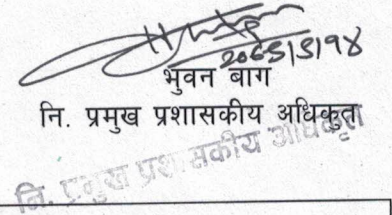 भुवन बाग
नि. प्रमुख प्रशासकीय अधिकृत
नि. प्रमुख प्रशासकीय अधिकृत